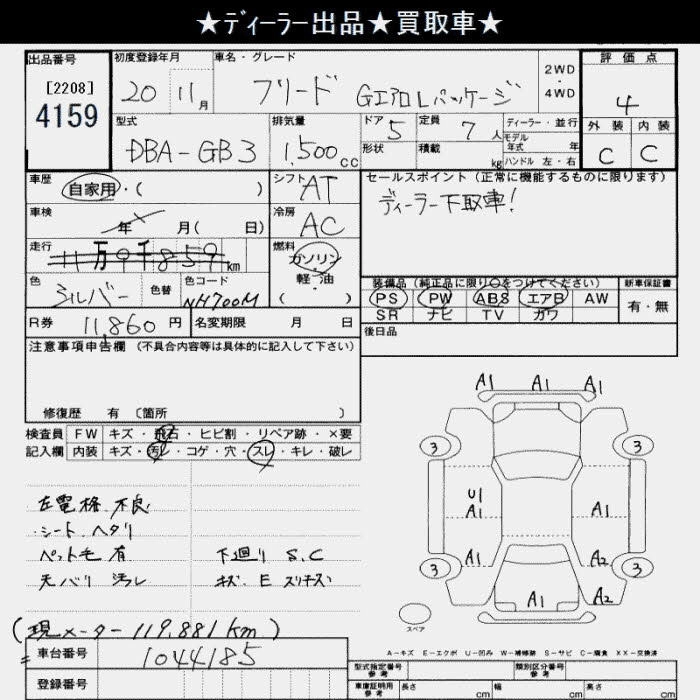 ★ディーラー出品★買取車★
出品番号 初度登録年月 車名・グレード 2WD・4WD 評価点
[2208] 4159
20 11月 フリード Gエアロ Lパッケージ 4
型式 排気量 ドア 5 定員 7人 ディーラー・並行 外装 内装
DBA-GB3 1,500cc 形状 積載 kg モデル年式 年 ハンドル 左・右 C C
車歴 自家用・( ) シフト AT セールスポイント(正常に機能するものに限ります)
車検 年 月( 日) 冷房 AC ディーラー下取車!
走行 11万0千859km 燃料 ガソリン・軽油 ( )
色 シルバー 色替 色コード NH700M
装備品(純正品に限り○をつけてください) 新車保証書
PS PW ABS エアB AW 有・無
SR ナビ TV カワ
R券 11,860円 名変期限 月 日 後日品
注意事項申告欄(不具合内容等は具体的に記入して下さい)
修復歴 有 〔箇所 〕
検査員 FW キズ・飛石・ヒビ割・リペア跡・×要
記入欄 内装 キズ・汚レ・コゲ・穴・スレ・キレ・破レ
左電格 不良
シート ヘタリ
ペット毛 有 下廻り S.C
天バリ 汚レ キズ.E スリキズ
(現メーター 119,881km)
A1 A1 A1
3 3
U1
A1 A1
A1 A2
3 3
A1 A2
スペア
A-キズ E-エクボ U-凹み W-補修跡 S-サビ C-腐食 XX-交換済
車台番号 1044185
型式指定番号 参考 類別区分番号 参考
登録番号
車庫証明用 参考 長さ cm 幅 cm 高さ cm